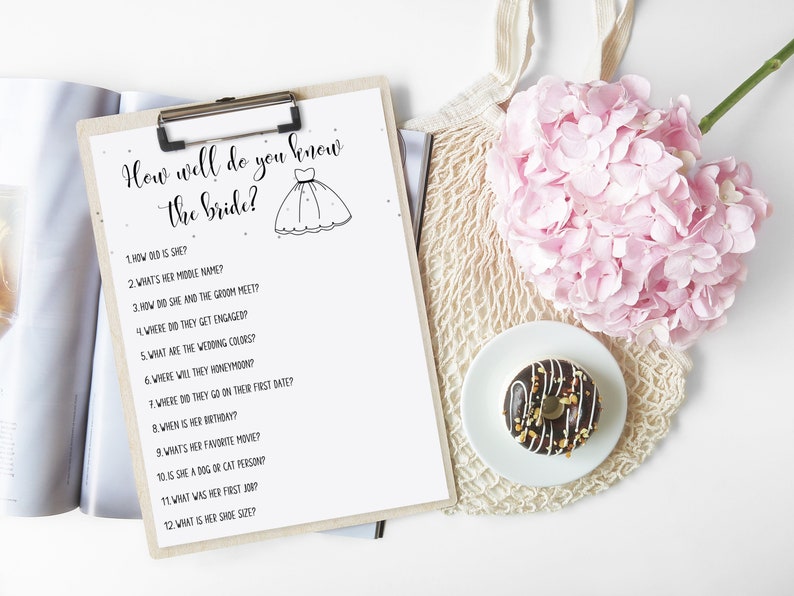 How well do you know
the bride?
1. HOW OLD IS SHE?
2. WHAT'S HER MIDDLE NAME?
3. HOW DID SHE AND THE GROOM MEET?
4. WHERE DID THEY GET ENGAGED?
5. WHAT ARE THE WEDDING COLORS?
6. WHERE WILL THEY HONEYMOON?
7. WHERE DID THEY GO ON THEIR FIRST DATE?
8. WHEN IS HER BIRTHDAY?
9. WHAT'S HER FAVORITE MOVIE?
10. IS SHE A DOG OR CAT PERSON?
11. WHAT WAS HER FIRST JOB?
12. WHAT IS HER SHOE SIZE?